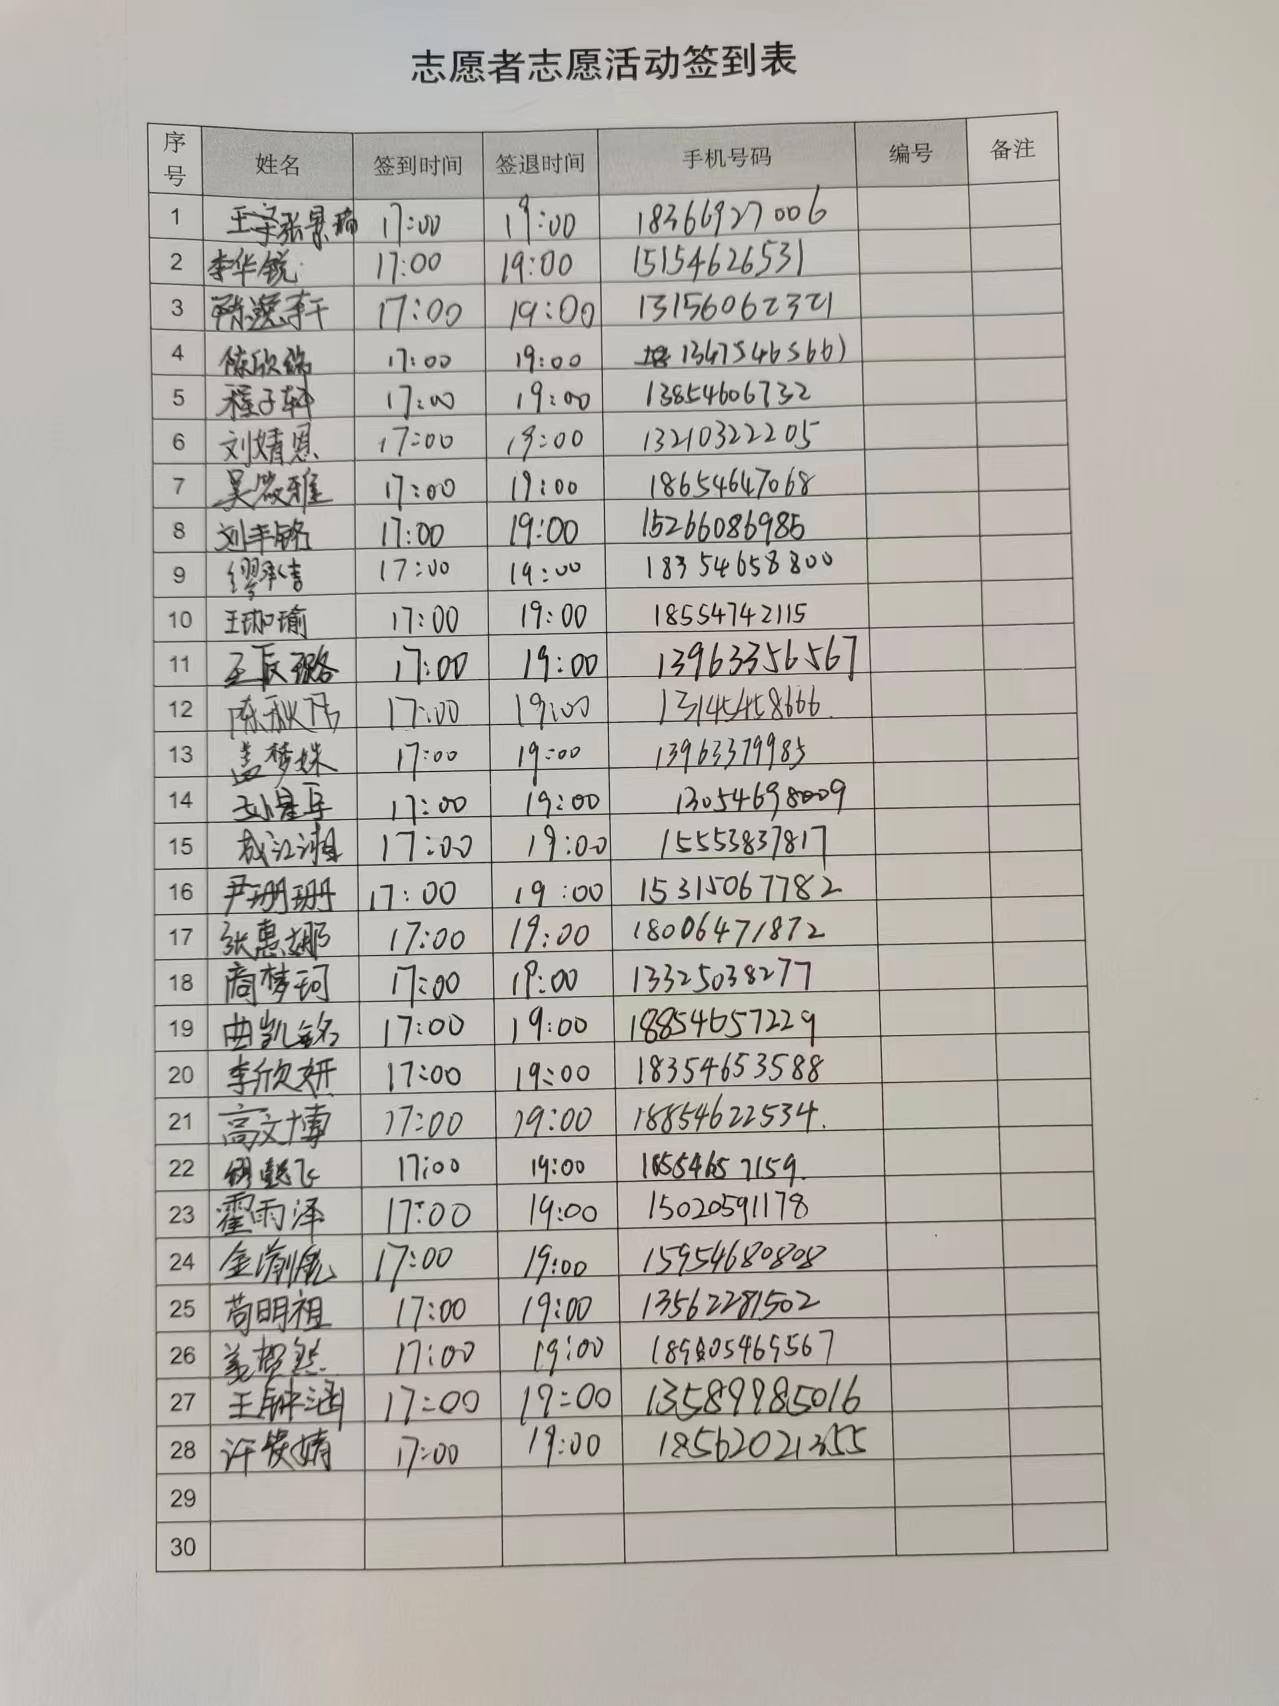 志愿者志愿活动签到表
序号 姓名 签到时间 签退时间 手机号码 编号 备注
1 张景瑞 17:00 19:00 18366927006
2 李华锐 17:00 19:00 15154626531
3 陈逸轩 17:00 19:00 13156062321
4 17:00 19:00 13475465661
5 程子轩 17:00 19:00 13854606732
6 刘婧恩 17:00 19:00 13210322205
7 吴筱雅 17:00 19:00 18654647068
8 刘丰铭 17:00 19:00 15266086985
9 缪承佶 17:00 19:00 18354658800
10 王珈瑜 17:00 19:00 18554742115
11 王辰璐 17:00 19:00 13963356567
12 17:00 19:00 13145458666
13 盖梦姝 17:00 19:00 13963379985
14 17:00 19:00 13054698009
15 成江湘 17:00 19:00 15553837817
16 尹珊珊 17:00 19:00 15315067782
17 张惠娜 17:00 19:00 18006471872
18 商梦珂 17:00 19:00 13325038277
19 曲凯铭 17:00 19:00 18854657229
20 李欣妍 17:00 19:00 18354653588
21 高文博 17:00 19:00 18854622534.
22 17:00 19:00
23 霍雨泽 17:00 19:00 15020591178
24 17:00 19:00 15954680808
25 苟明祖 17:00 19:00 13562281502
26 17:00 19:00
27 王钟涵 17:00 19:00 13589985016
28 17:00 19:00 18562021355
29
30